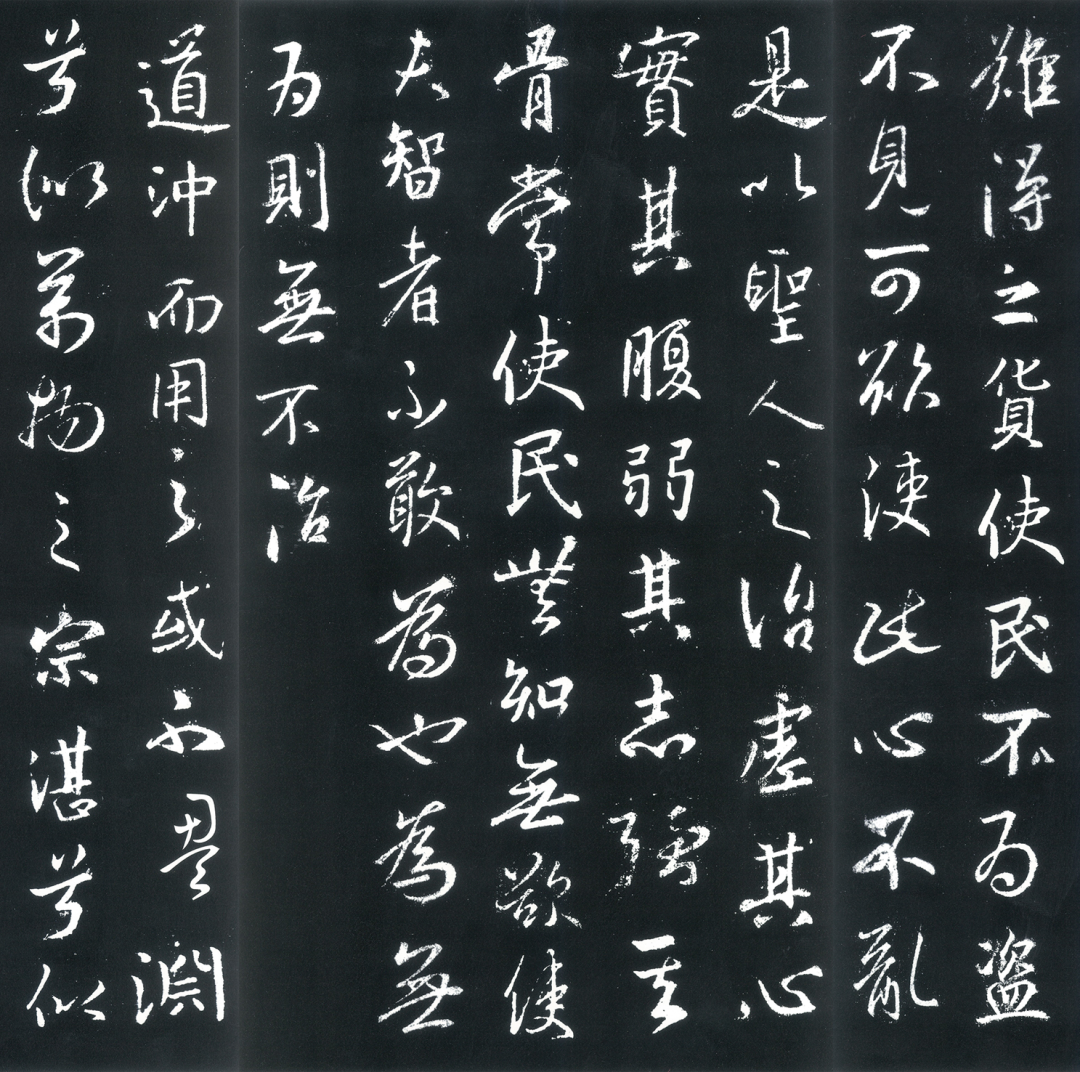 難得之貨使民不為盜
不見可欲使民心不亂
是以聖人之治虛其心
實其腹弱其志強其
骨常使民無知無欲使
夫智者不敢為也為無
為則無不治
道沖而用之或不盈淵
兮似萬物之宗湛兮似